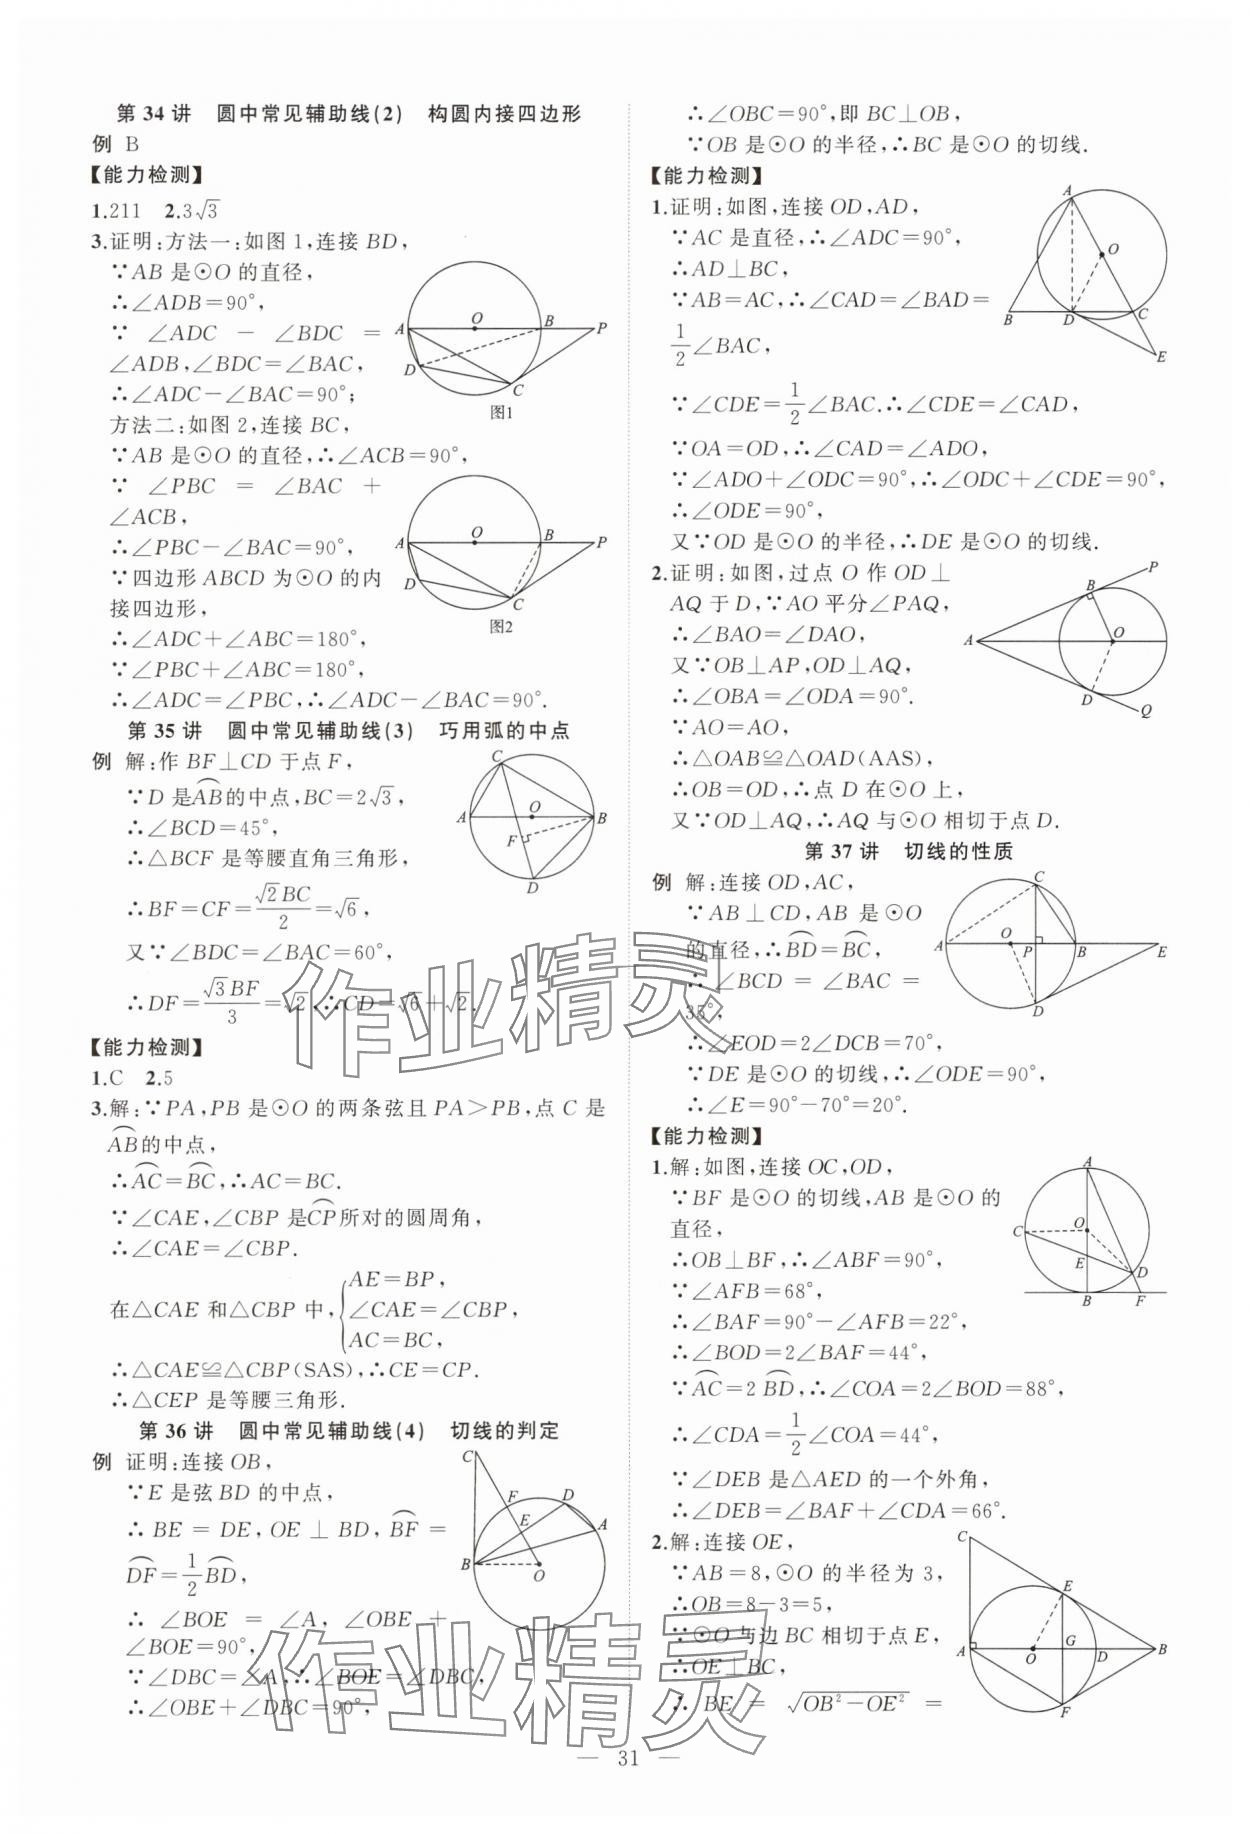 第 34 讲 圆中常见辅助线(2) 构圆内接四边形
例 B
【能力检测】
1.211 2.3√3
3.证明:方法一:如图 1,连接 BD,
∵AB 是⊙O 的直径,
∴∠ADB=90°,
∵ ∠ADC - ∠BDC =
∠ADB,∠BDC=∠BAC,
∴∠ADC-∠BAC=90°;
方法二:如图 2,连接 BC,
∵AB 是⊙O 的直径,∴∠ACB=90°,
∵ ∠PBC = ∠BAC +
∠ACB,
∴∠PBC-∠BAC=90°,
∵四边形 ABCD 为⊙O 的内
接四边形,
∴∠ADC+∠ABC=180°,
∵∠PBC+∠ABC=180°,
∴∠ADC=∠PBC,∴∠ADC-∠BAC=90°.
A O B P D C
图1
A O B P D C
图2
第 35 讲 圆中常见辅助线(3) 巧用弧的中点
例 解:作 BF⊥CD 于点 F,
∵D 是⌒AB的中点,BC=2√3,
∴∠BCD=45°,
∴△BCF 是等腰直角三角形,
∴BF=CF=√2BC/2=√6,
又∵∠BDC=∠BAC=60°,
∴DF=√3BF/3=√2,∴CD=√6+√2.
C A O B F D
【能力检测】
1.C 2.5
3.解:∵PA,PB 是⊙O 的两条弦且 PA>PB,点 C 是
⌒AB的中点,
∴⌒AC=⌒BC,∴AC=BC.
∵∠CAE,∠CBP 是⌒CP所对的圆周角,
∴∠CAE=∠CBP.
在△CAE 和△CBP 中,{AE=BP,
∠CAE=∠CBP,
AC=BC,
∴△CAE≌△CBP(SAS),∴CE=CP.
∴△CEP 是等腰三角形.
第 36 讲 圆中常见辅助线(4) 切线的判定
例 证明:连接 OB,
∵E 是弦 BD 的中点,
∴ BE = DE,OE ⊥ BD,⌒BF =
⌒DF=1/2⌒BD,
∴ ∠BOE = ∠A, ∠OBE +
∠BOE=90°,
∵∠DBC=∠A,∴∠BOE=∠DBC,
∴∠OBE+∠DBC=90°,
C F D E A B O
∴∠OBC=90°,即 BC⊥OB,
∵OB 是⊙O 的半径,∴BC 是⊙O 的切线.
【能力检测】
1.证明:如图,连接 OD,AD,
∵AC 是直径,∴∠ADC=90°,
∴AD⊥BC,
∵AB=AC,∴∠CAD=∠BAD=
1/2∠BAC,
∵∠CDE=1/2∠BAC.∴∠CDE=∠CAD,
∵OA=OD,∴∠CAD=∠ADO,
∵∠ADO+∠ODC=90°,∴∠ODC+∠CDE=90°,
∴∠ODE=90°,
又∵OD 是⊙O 的半径,∴DE 是⊙O 的切线.
A O B D C E
2.证明:如图,过点 O 作 OD⊥
AQ 于 D,∵AO 平分∠PAQ,
∴∠BAO=∠DAO,
又∵OB⊥AP,OD⊥AQ,
∴∠OBA=∠ODA=90°.
∵AO=AO,
∴△OAB≌△OAD(AAS),
∴OB=OD,∴点 D 在⊙O 上,
又∵OD⊥AQ,∴AQ 与⊙O 相切于点 D.
P B A O D Q
第 37 讲 切线的性质
例 解:连接 OD,AC,
∵AB⊥CD,AB 是⊙O
的直径,∴⌒BD=⌒BC,
∴ ∠BCD = ∠BAC =
35°,
∴∠EOD=2∠DCB=70°,
∵DE 是⊙O 的切线,∴∠ODE=90°,
∴∠E=90°-70°=20°.
C A O P B E D
【能力检测】
1.解:如图,连接 OC,OD,
∵BF 是⊙O 的切线,AB 是⊙O 的
直径,
∴OB⊥BF,∴∠ABF=90°,
∵∠AFB=68°,
∴∠BAF=90°-∠AFB=22°,
∴∠BOD=2∠BAF=44°,
∵⌒AC=2⌒BD,∴∠COA=2∠BOD=88°,
∴∠CDA=1/2∠COA=44°,
∵∠DEB 是△AED 的一个外角,
∴∠DEB=∠BAF+∠CDA=66°.
A C O E D B F
2.解:连接 OE,
∵AB=8,⊙O 的半径为 3,
∴OB=8-3=5,
∵⊙O 与边 BC 相切于点 E,
∴OE⊥BC,
∴ BE = √OB²-OE² =
C E A O G D B F
作业精灵
作业精灵
— 31 —